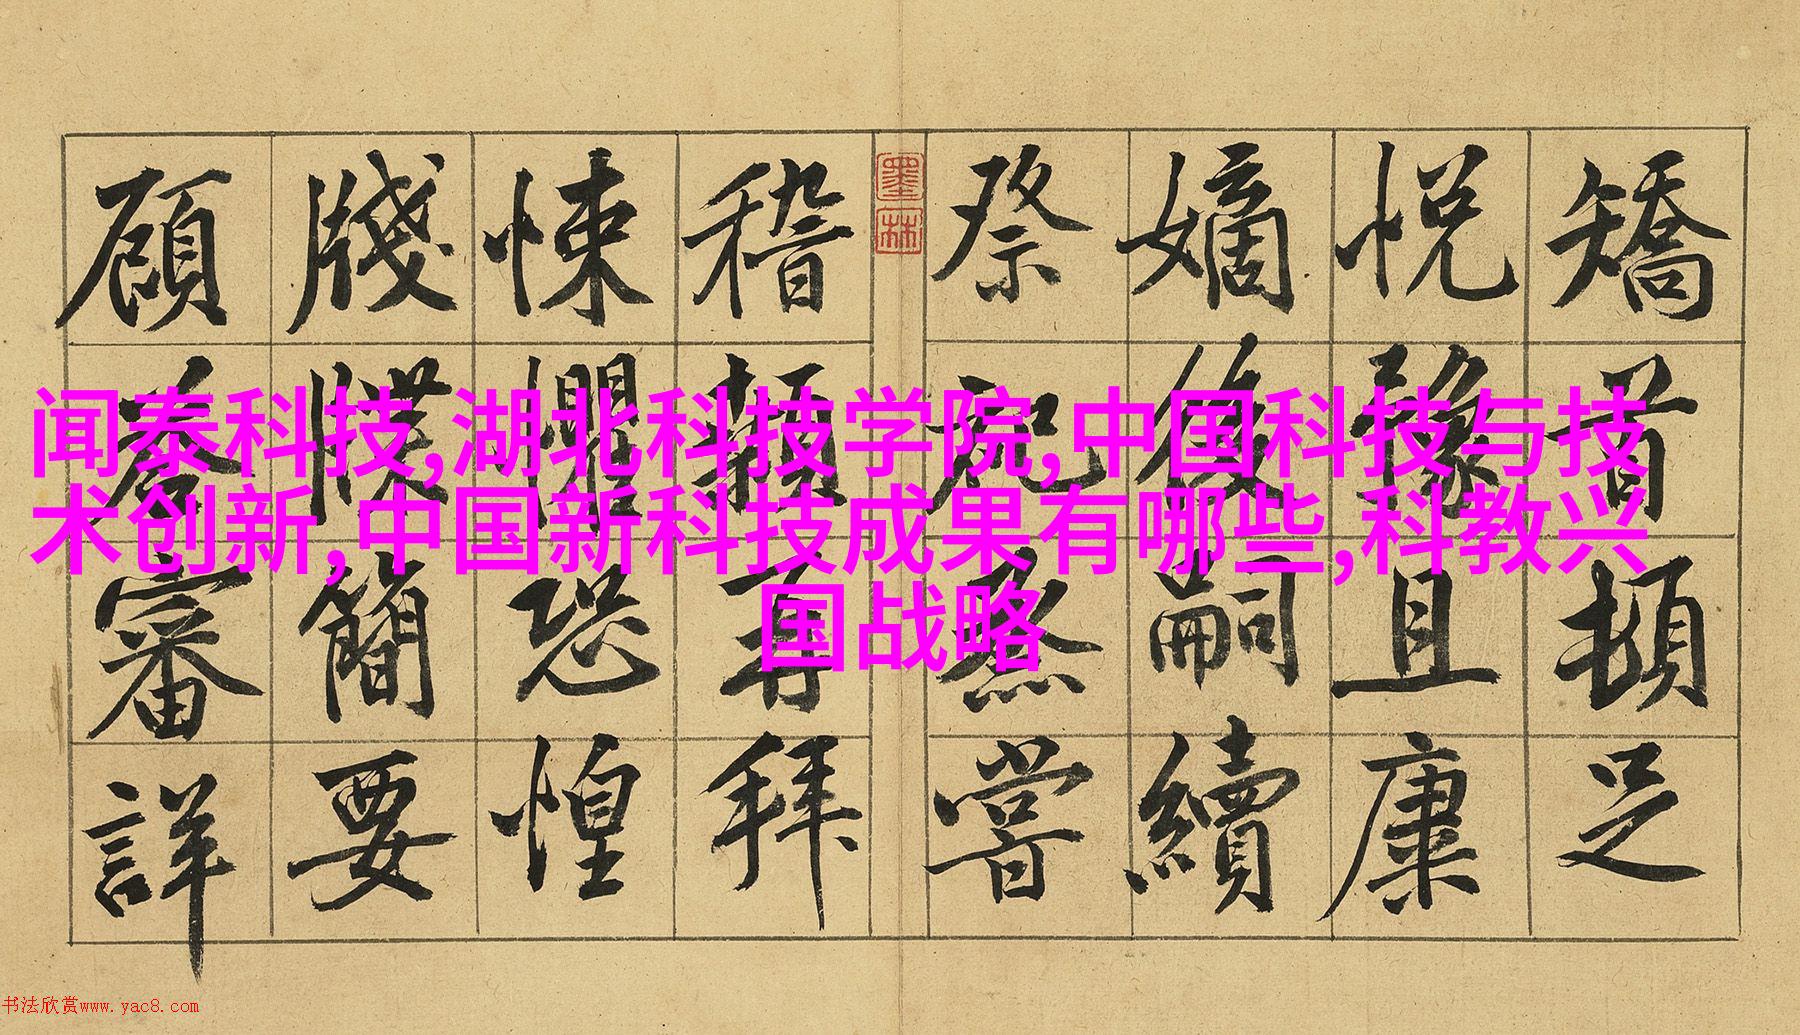 矯首頓足
悅豫且康
嫡後嗣續
祭祀烝嘗
墨林
稽顙再拜
悚懼恐惶
牋牒簡要
顧荅審詳
闻泰科技,湖北科技学院,中国科技与技
术创新,中国新科技成果有哪些,科教兴
国战略
书法欣赏www.yac8.com